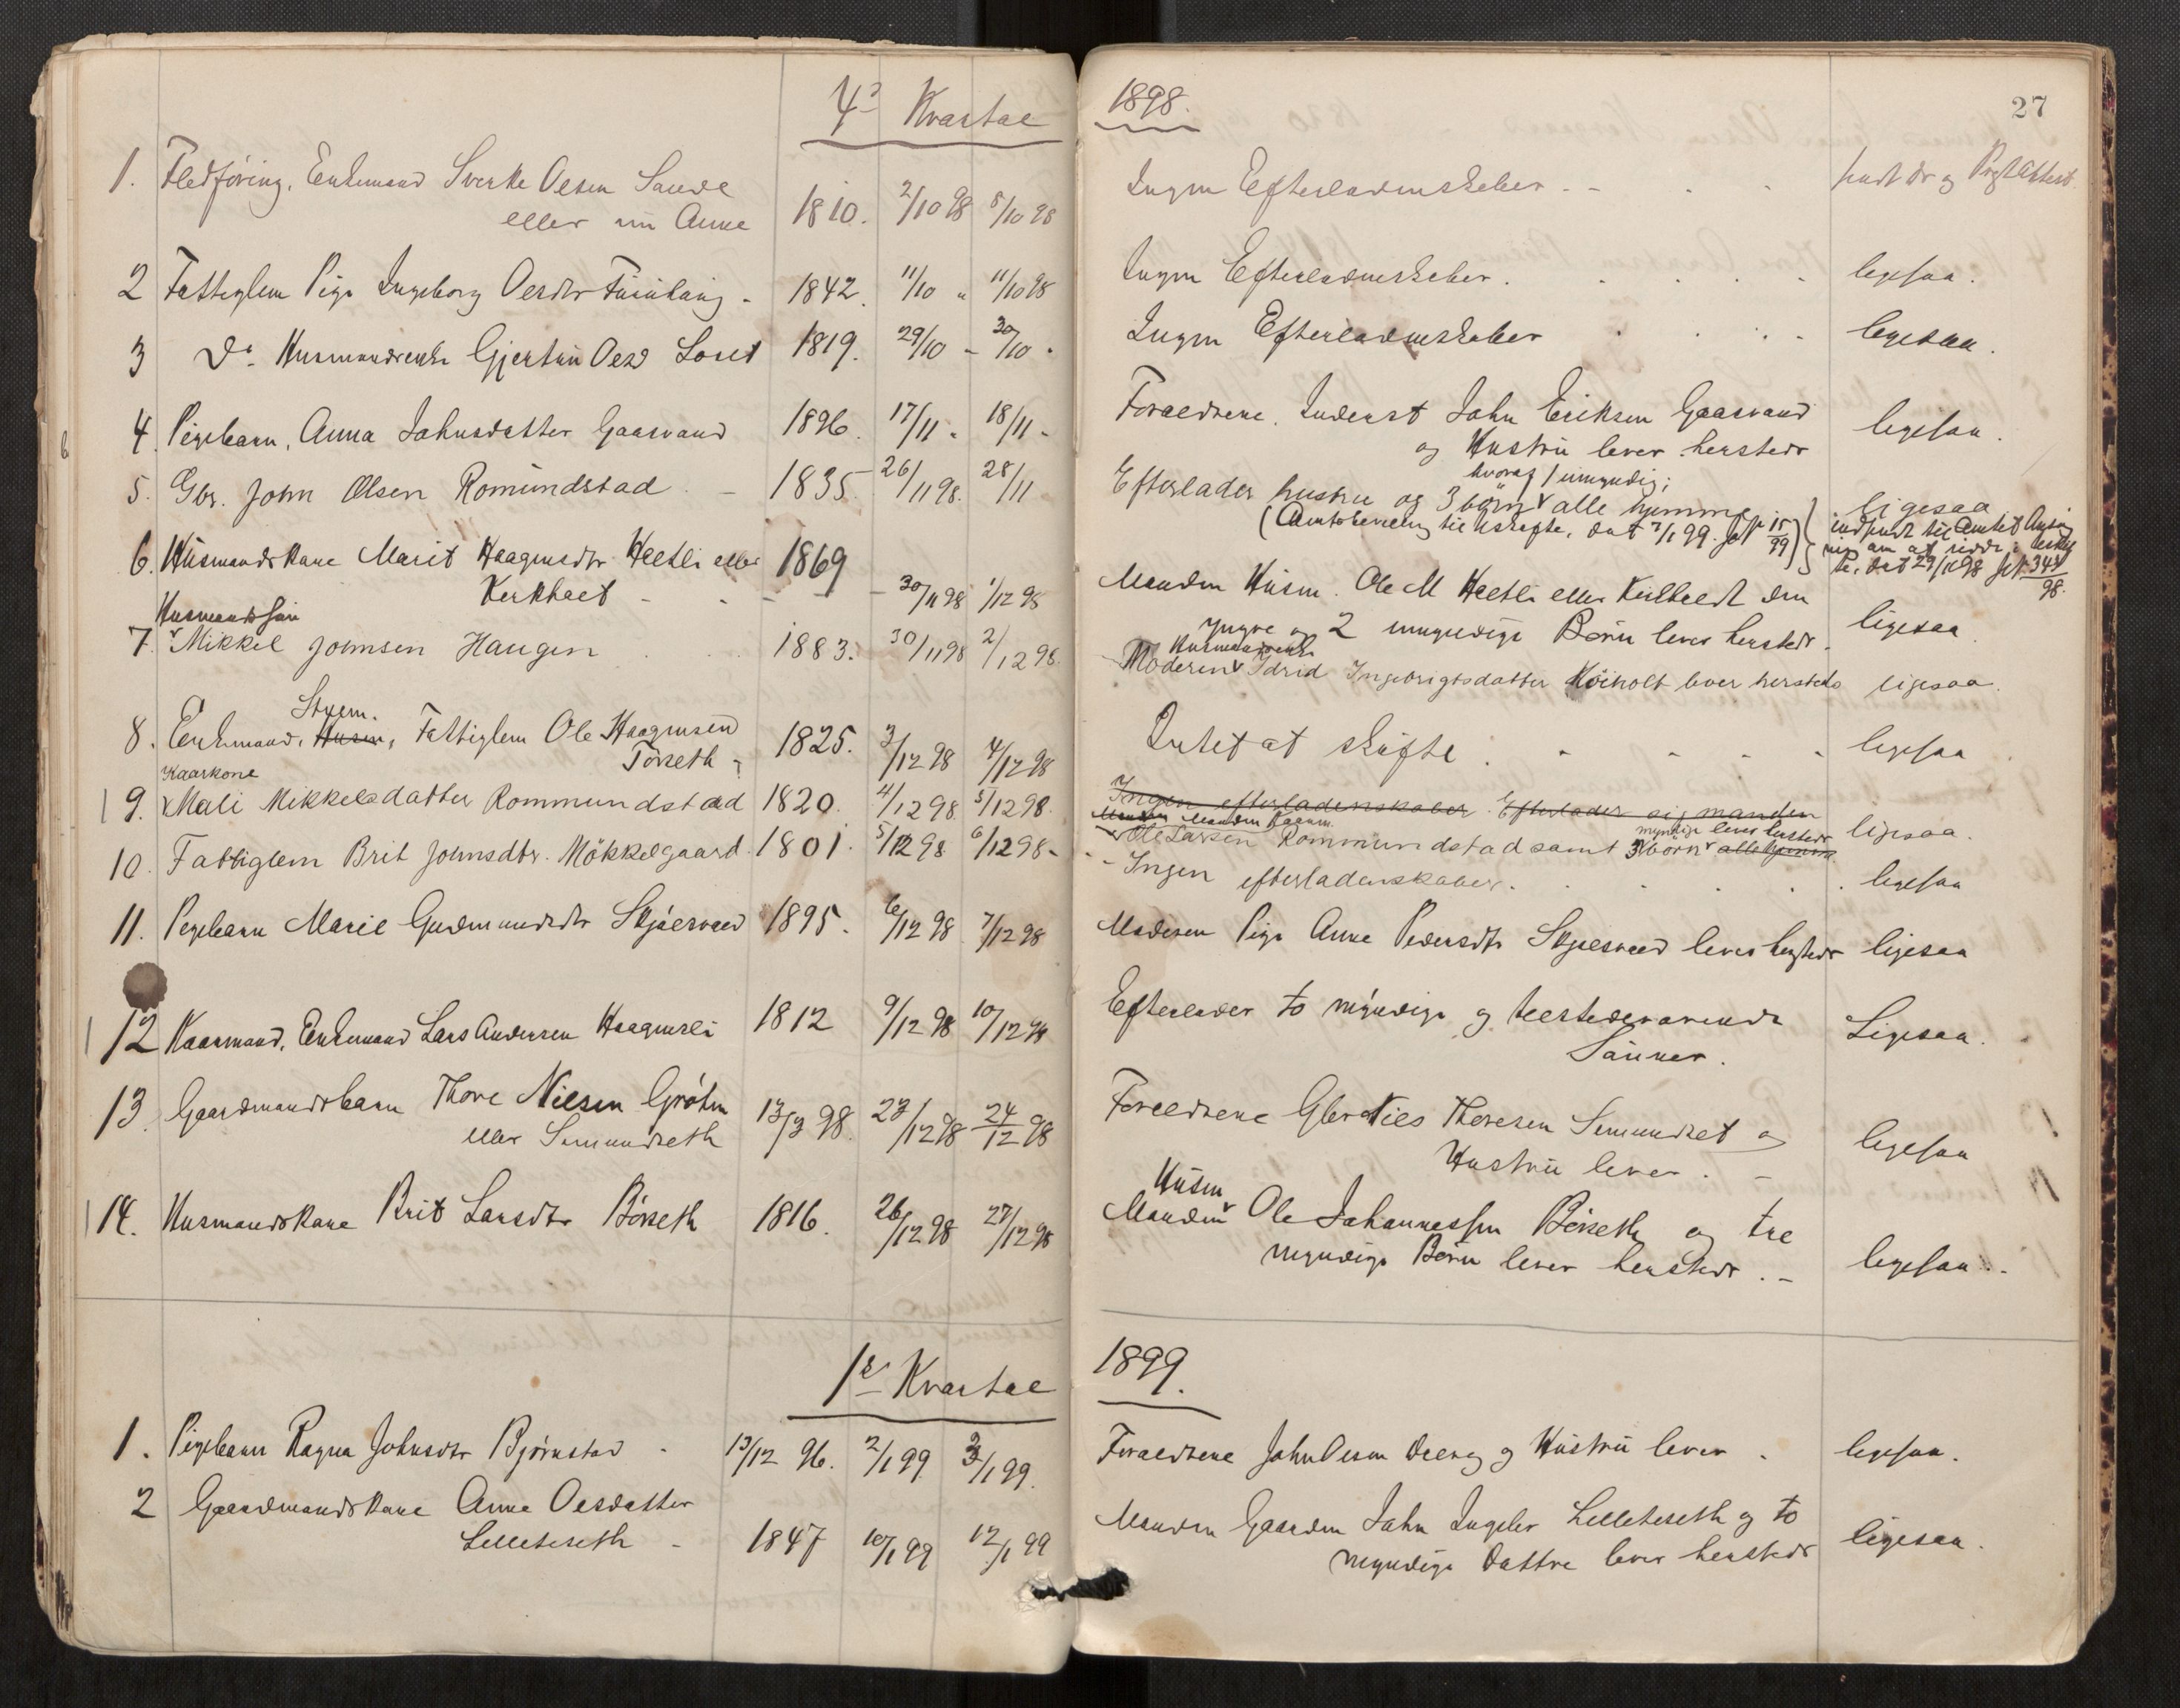 4de Kvartal 1898.
27
1. Fledføring, Enkemand Sverke Olsen Sande
eller nu Aune 1810. 2/10 98 5/10 98 Ingen Efterladenskaber sendt Dr og Prgst Attest.
2 Fattiglem Pige Ingeborg Olsdtr 1842. 11/10 " 11/10 98 Ingen Efterladenskaber. ligesaa.
3 Do Husmandsenke Gjertru Olsd Loset 1819. 29/10 - 30/10 - Ingen Efterladenskaber ligesaa.
4. Pigebarn, Anna Johnsdatter Gaasvand 1896. 17/11 - 18/11 - Forældrene, Inderst John Eriksen Gaasvand
og Hustru lever herstedr ligesaa.
hvoraf 1 umyndig;
5. Gbr. John Olsen Romundstad 1835 26/11 98. 28/11 Efterlader hustru og 3 børn alle hjemme ligesaa
(Amtsbevilling til Uskifte, dat 7/1 99. 15/99) indsendt til Amtet
om at sidde i uskif
te, dat 29/11 98 343/98.
6. Husmandskone Marit Haagensdtr Heetli eller
Kerkholt 1869 30/11 98 1/12 98 Manden Husm. Ole M Heetli eller Kerkholt den
yngre og 2 umyndige Børn lever herstedr. ligesaa
Husmandssøn
7. Mikkel Johnsen Haugen 1883. 30/11 98 2/12 98 Husmandsenke
Moderen Idrid Ingebrigtsdatter Röiholt lever hersteds ligesaa.
Stuem.
8. Enkemand, Husm, Fattiglem Ole Haagensen
Törseth 1825. 3/12 98 4/12 98 Intet at skifte. ligesaa
Kaarkone
9. Mali Mikkelsdatter Rommundstad 1820. 4/12 98. 5/12 98. Ingen efterladenskaber. Efterlader sig manden
Manden Kaarm. myndige lever herstedr
Ole Larsen Rommundstad samt 3 børn alle hjemme ligesaa.
10. Fattiglem Brit Johnsdtr. Mökkelgaard. 1801. 5/12 98 6/12 98 - Ingen efterladenskaber. ligesaa
11. Pigebarn Marie Gudmundsdtr Skjølsvold 1895. 6/12 98 7/12 98 Moderen Pige Anne Pedersdtr Skjølsvold lever herstedr ligesaa
12 Kaarmand, Enkemand Lars Andersen Haagensli 1812 9/12 98 10/12 98 Efterlader to myndige og tilstedeværende
Sønner. Ligesaa.
13. Gaardmandsbarn Thore Nilsen Grøtm
eller Simundseth 13/3 98. 23/12 98 24/12 98 Forældrene Gbr Niels Thoresen Simundset og
Hustru lever. ligesaa
14. Husmandskone Brit Larsdtr Börseth 1816. 26/12 98 27/12 98 Husm
Manden Ole Johannessen Börseth og tre
myndige Børn lever herstedr. ligesaa.
1ste Kvartal 1899.
1. Pigebarn Ragna Johnsdtr Bjørnstad 13/12 96. 2/1 99 3/1 99. Forældrene John Olsen og Hustru lever. ligesaa.
2 Gaardmandskone Anne Olsdatter
Lilleteseth 1847 10/1 99 12/1 99 Manden Gaardm John Ingebr Lilleteseth og to
myndige Døttre lever herstedr ligesaa.